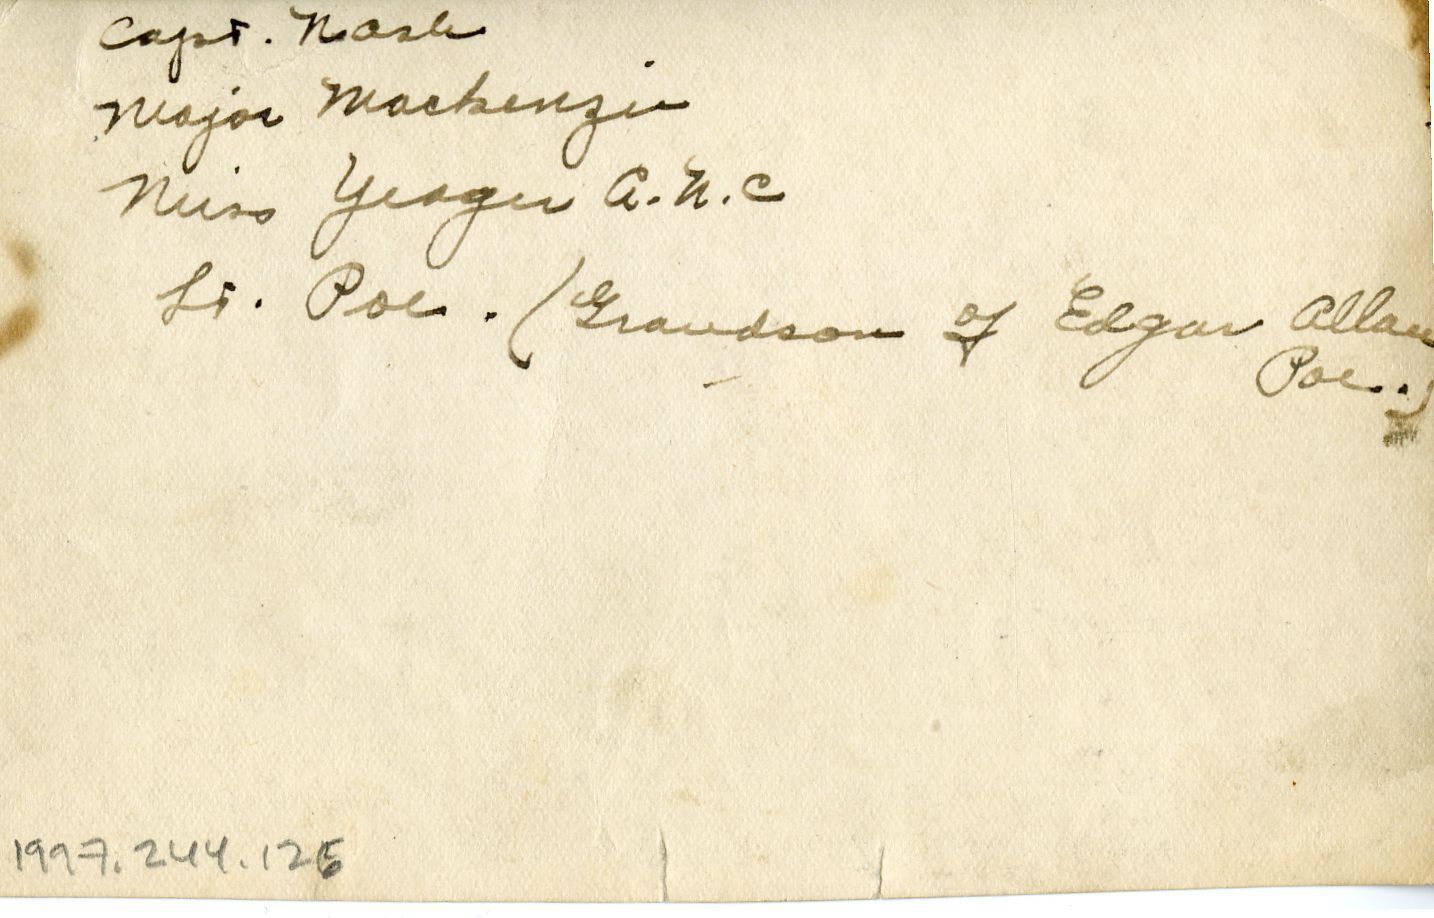 Capt. Nash
Major Mackenzie
Miss Yeager A.N.C
Lt. Poe. (Grandson of Edgar Allan
Poe.)
1997.244.126